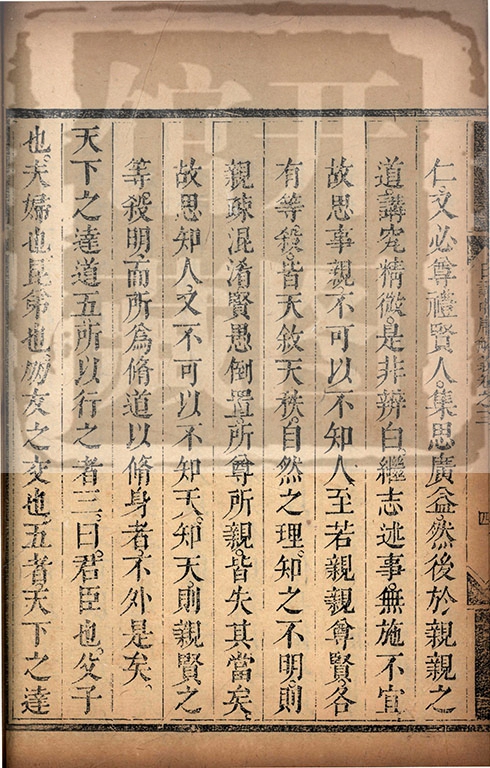 仁又必尊禮賢人。集思廣益。然後於親親之
道講究精微。是非辨白。繼志述事。無施不宜
故思事親不可以不知人。至若親親尊賢。各
有等殺。皆天敘天秩。自然之理。知之不明。則
親疎混淆。賢愚倒置。所尊所親。皆失其當矣。
故思知人。又不可以不知天。知天。則親賢之
等殺明。而所爲脩道以脩身者。不外是矣。
天下之達道五。所以行之者三。曰。君臣也。父子
也。夫婦也。昆弟也。朋友之交也。五者天下之達
四